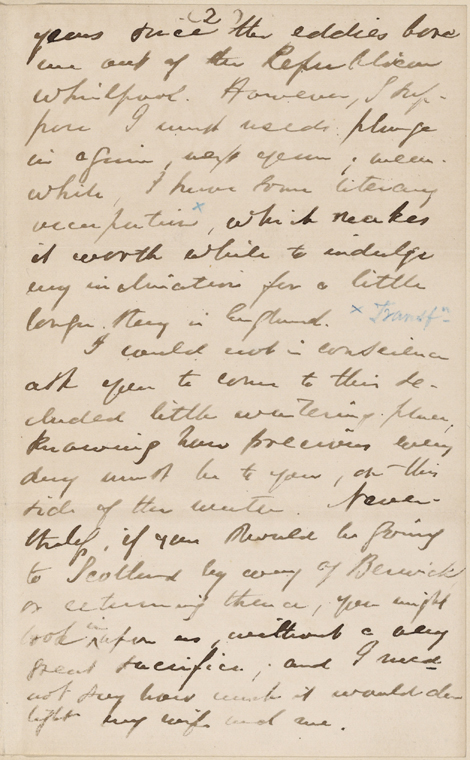 (2)
years since the eddies bore
me out of the Republican
whirlpool. However, I sup-
pose I must needs plunge
in again, next year; mean-
while, I have some literary
occupation x, which makes
it worth while to indulge
my inclination for a little
longer stay in England. x Transfn
I would not in conscience
ask you to come to this se-
cluded little watering-place,
knowing how precious every
day must be to you, on this
side of the water. Never-
theless, if you should be going
to Scotland by way of Berwick
or returning thence, you might
look in upon us, without a very
great sacrifice; and I need
not say how much it would de-
light my wife and me.